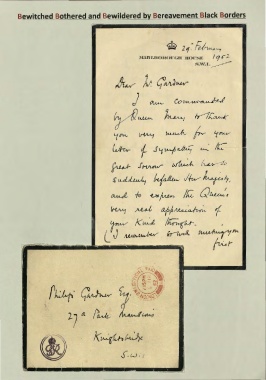 Bewitched Bothered and Bewildered by Bereavement Black Borders
29 February
1952
MARLBOROUGH HOUSE
S.W.1.
Dear Mr Gardner
I am commanded
by Queen Mary to thank
you very much for your
letter of sympathy in the
great sorrow which has so
suddenly befallen Her Majesty,
and to express the Queen's
very real appreciation of
your kind thought.
(I remember meeting you
first
Philip Gardner Esq.
27a Park Mansions
Knightsbridge
S.W.1